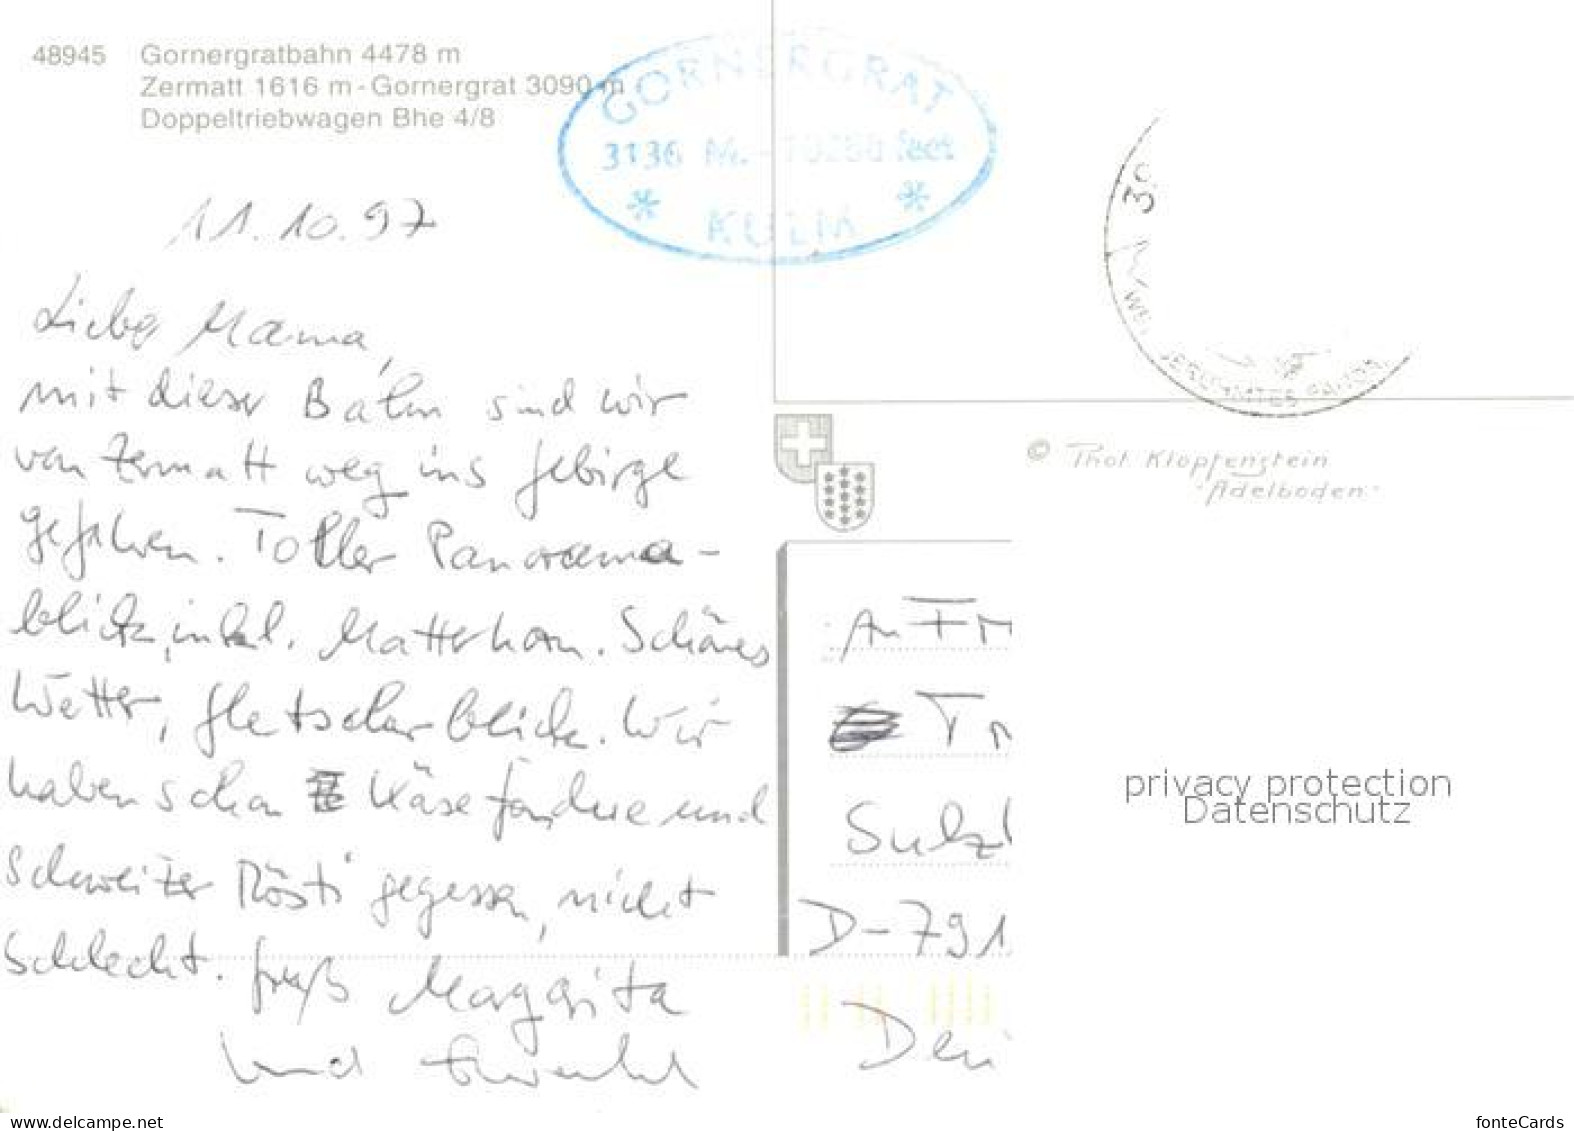 48945 Gornergratbahn 4478 m
Zermatt 1616 m - Gornergrat 3090 m
Doppeltriebwagen Bhe 4/8
GORNERGRAT
3136 M. - 10280 feet
KULM
11.10.97
Liebe Mama,
mit dieser Bahn sind wir
von Zermatt weg ins Gebirge
gefahren. Toller Panorama-
blick, inkl. Matterhorn. Schönes
Wetter, Gletscherblick. Wir
haben schon Käsefondue und
Schweizer Rösti gegessen, nicht
schlecht. Gruß Margrita
und
© Phot Klopfenstein
"Adelboden"
An
Sulz
D-791
privacy protection
Datenschutz
www.delcampe.net
fonteCards